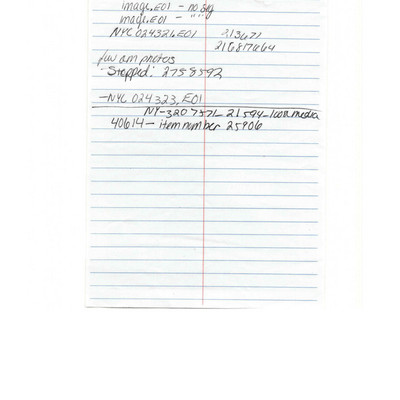 image.E01 - no
image.E01 - " "
NYC024321.E01 213671
photos
Stopped: 2758592
-NYC024323.E01
NY-3207571-21594-1001media
40614 - item number 25906